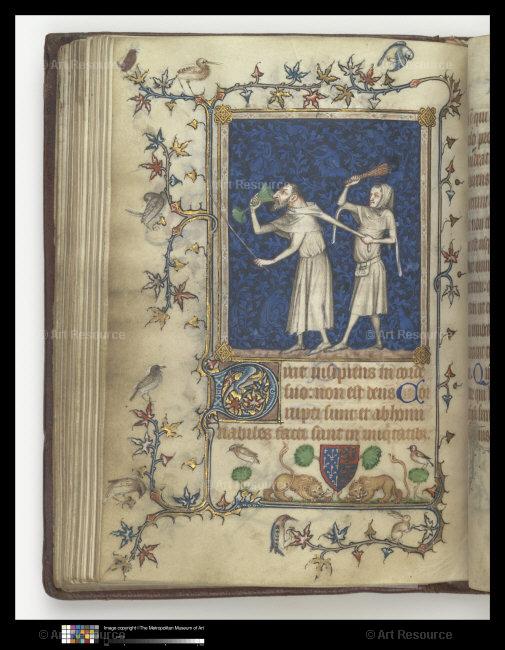 © Art Resource © Art Resource
© Art Resource © Art Resource
Dixit insipiens in corde
suo: non est deus Cor
rupti sunt et abhomi
nabiles facti sunt in
Image copyright ©The Metropolitan Museum of Art
© Art Resource © Art Resource